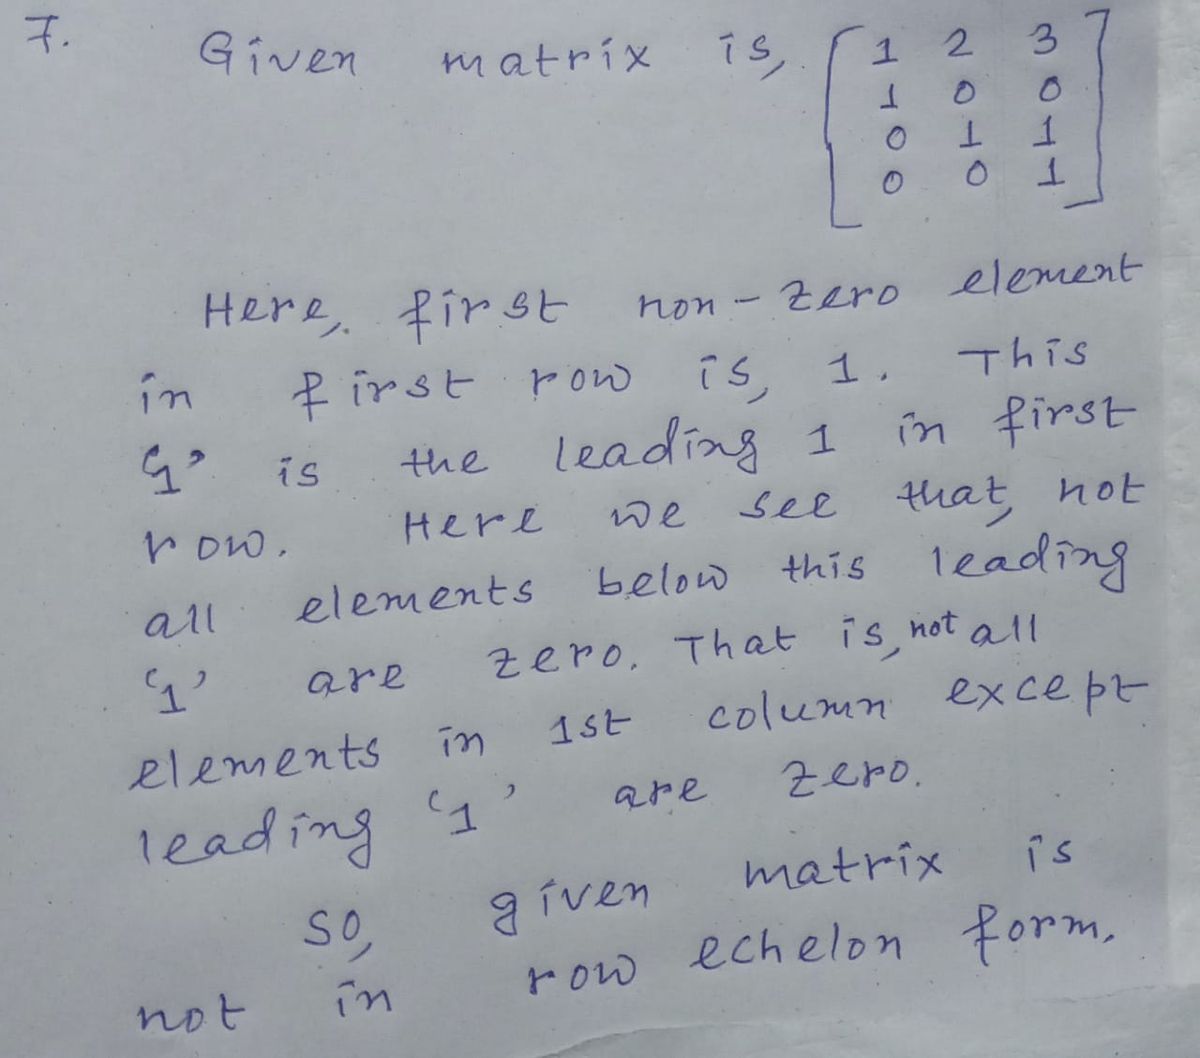 7. Given matrix is, [1 2 3
1 0 0
0 1 1
0 0 1]
Here, first non-zero element
in first row is, 1. This
'1' is the leading 1 in first
row. Here we see that, not
all elements below this leading
'1' are zero. That is, not all
elements in 1st column except
leading '1' are zero.
So, given matrix is
not in row echelon form.